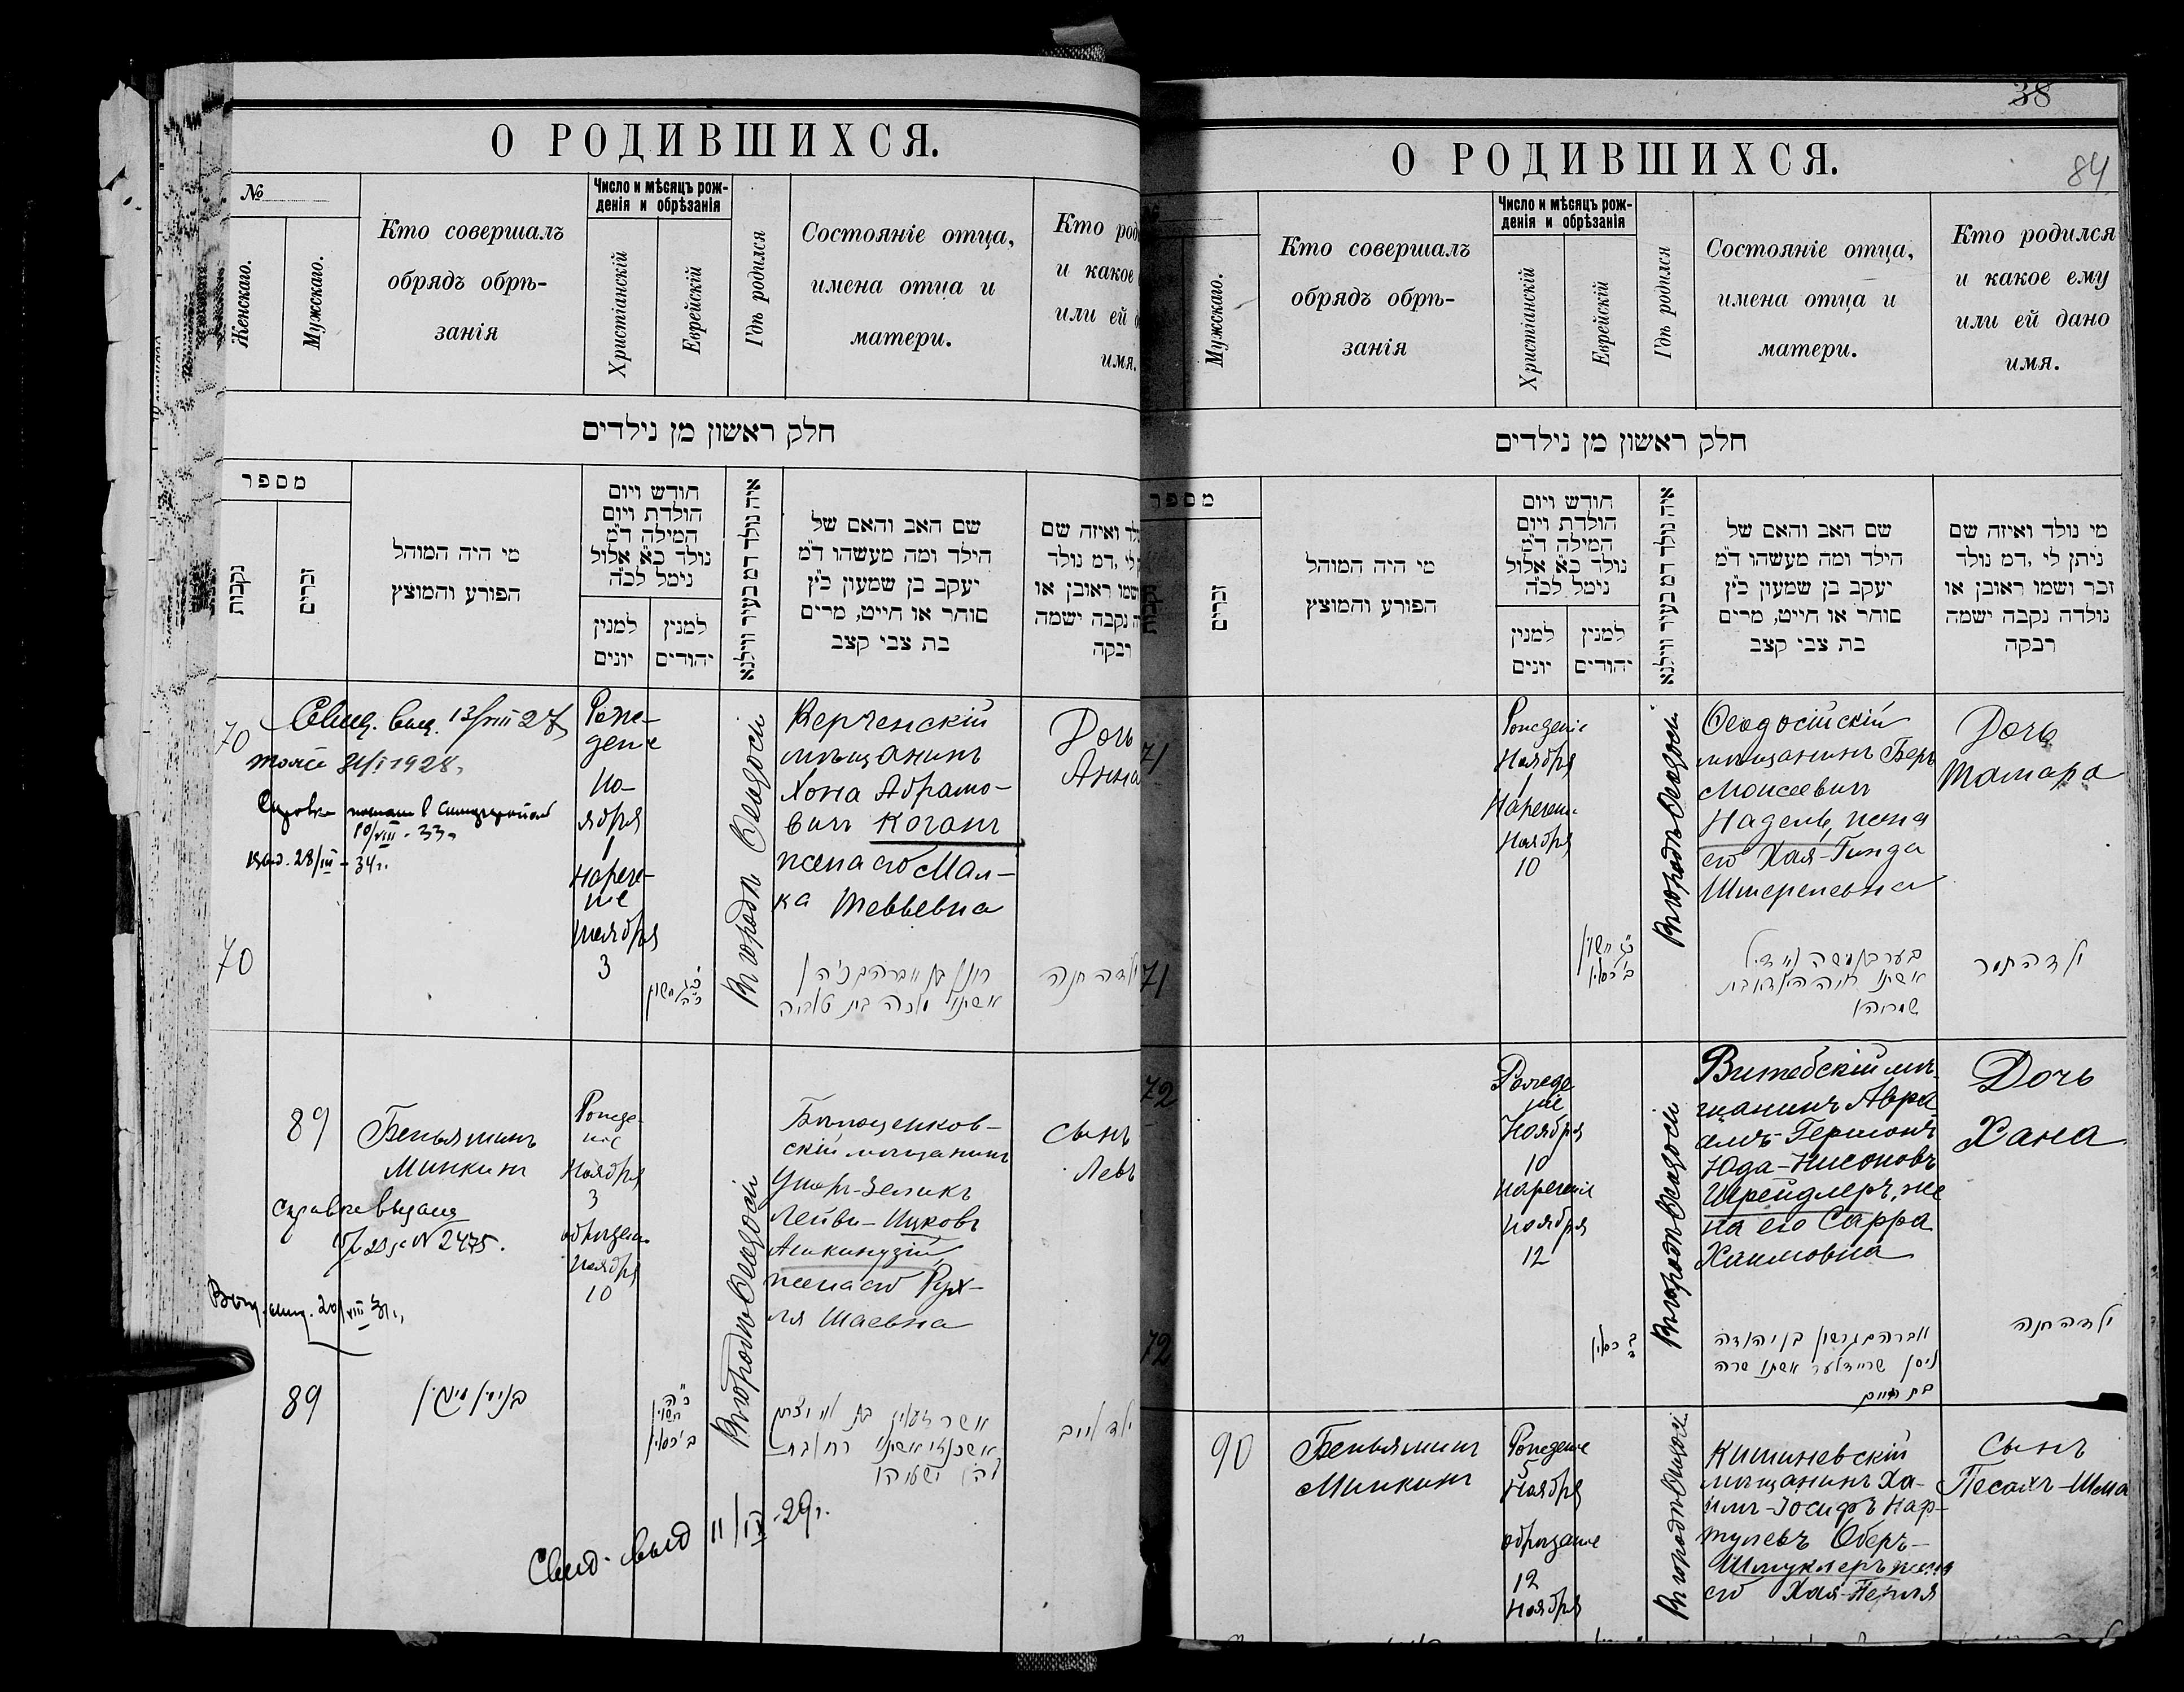 О РОДИВШИХСЯ.
№
Женскаго.
Мужскаго.
Кто совершалъ
обрядъ обрѣ-
занія
Число и мѣсяцъ рож-
денія и обрѣзанія
Христіанскій
Еврейскій
Гдѣ родился
Состояніе отца,
имена отца и
матери.
Кто род
и какое
или ей
имя.
חלק ראשון מן נילדים
מספר
נקבות
זכרים
מי היה המוהל
הפורע והמוצץ
חודש ויום
הולדת ויום
המילה ד״מ
נולד כ״א אלול
נימל לכ״ה
למנין
יונים
למנין
יהודים
איה נולד דמ בעיר ווילנא
שם האב והאם של
הילד ומה מעשהו ד״מ
יעקב בן שמעון כ״ץ
סוחר או חייט, מרים
בת צבי קצב
ולד ואיזה שם
לי, דמ נולד
ושמו ראובן או
נקבה ישמה
רבקה
70
Свид. выд. 13/VIII 27
тоже 21/I 1928
10/VIII - 33
выд. 28/III - 34г.
Рожде-
ние
Но-
ября
1
нарече-
ние
ноября
3
Въ городѣ Ѳеодосіи
Керченскій
мѣщанинъ
Хона Абрамо-
вичъ Коганъ
жена его Мал-
ка Тевьевна
Дочь
Анна
70
ילדה חנה
89
Беньяминъ
Минкинъ
Справка выдана
№ 2475.
Выд. свид. 20/VIII 31г.
Рожде-
ние
Ноября
3
обрѣзан.
Ноября
10
Въ городѣ Ѳеодосіи
Бѣшенков-
скій мѣщанинъ
Ушеръ-Зеликъ
Лейви-Ицковъ
Ашкинузій
жена его Рух-
ля Шаевна
сынъ
Левъ
89
בנימין מינקין
אשכנזי אשתו רחל בת
ילד לייב
Свид. выд 11/IV - 29г.
38
84
О РОДИВШИХСЯ.
Мужскаго.
Кто совершалъ
обрядъ обрѣ-
занія
Число и мѣсяцъ рож-
денія и обрѣзанія
Христіанскій
Еврейскій
Гдѣ родился
Состояніе отца,
имена отца и
матери.
Кто родился
и какое ему
или ей дано
имя.
חלק ראשון מן נילדים
מספר
זכרים
מי היה המוהל
הפורע והמוצץ
חודש ויום
הולדת ויום
המילה ד״מ
נולד כ״א אלול
נימל לכ״ה
למנין
יונים
למנין
יהודים
איה נולד דמ בעיר ווילנא
שם האב והאם של
הילד ומה מעשהו ד״מ
יעקב בן שמעון כ״ץ
סוחר או חייט, מרים
בת צבי קצב
מי נולד ואיזה שם
ניתן לי, דמ נולד
זכר ושמו ראובן או
נולדה נקבה ישמה
רבקה
71
Рождение
Ноября
1
Наречение
Ноября
10
Въ городѣ Ѳеодосіи
Ѳеодосійскій
мѣщанинъ Беръ
Моисеевичъ
Надель, жена
его Хая-Гинда
Шмерелевна
Дочь
Тамара
71
ילדה תמר
72
Рожде
ние
Ноября
10
наречение
ноября
12
Въ городѣ Ѳеодосіи
Витебскій мѣ-
щанинъ Авра-
амъ-Гершонъ
Юда-Нисоновъ
Шрейдлеръ, же
на его Сарра
Хаимовна
Дочь
Хана
72
אברהם גרשון בן יהודה
ניסן שריידלער אשתו שרה
בת חיים
ילדה חנה
90
Беньяминъ
Минкинъ
Рождение
5
Ноября
обрѣзание
12
Ноября
Въ городѣ Ѳеодосіи
Кишиневскій
мѣщанинъ Ха-
имъ-Іосифъ Наф-
тулевъ Оберъ-
Шмуклеръ жена
его Хая-Перля
Сынъ
Песахъ-Шма